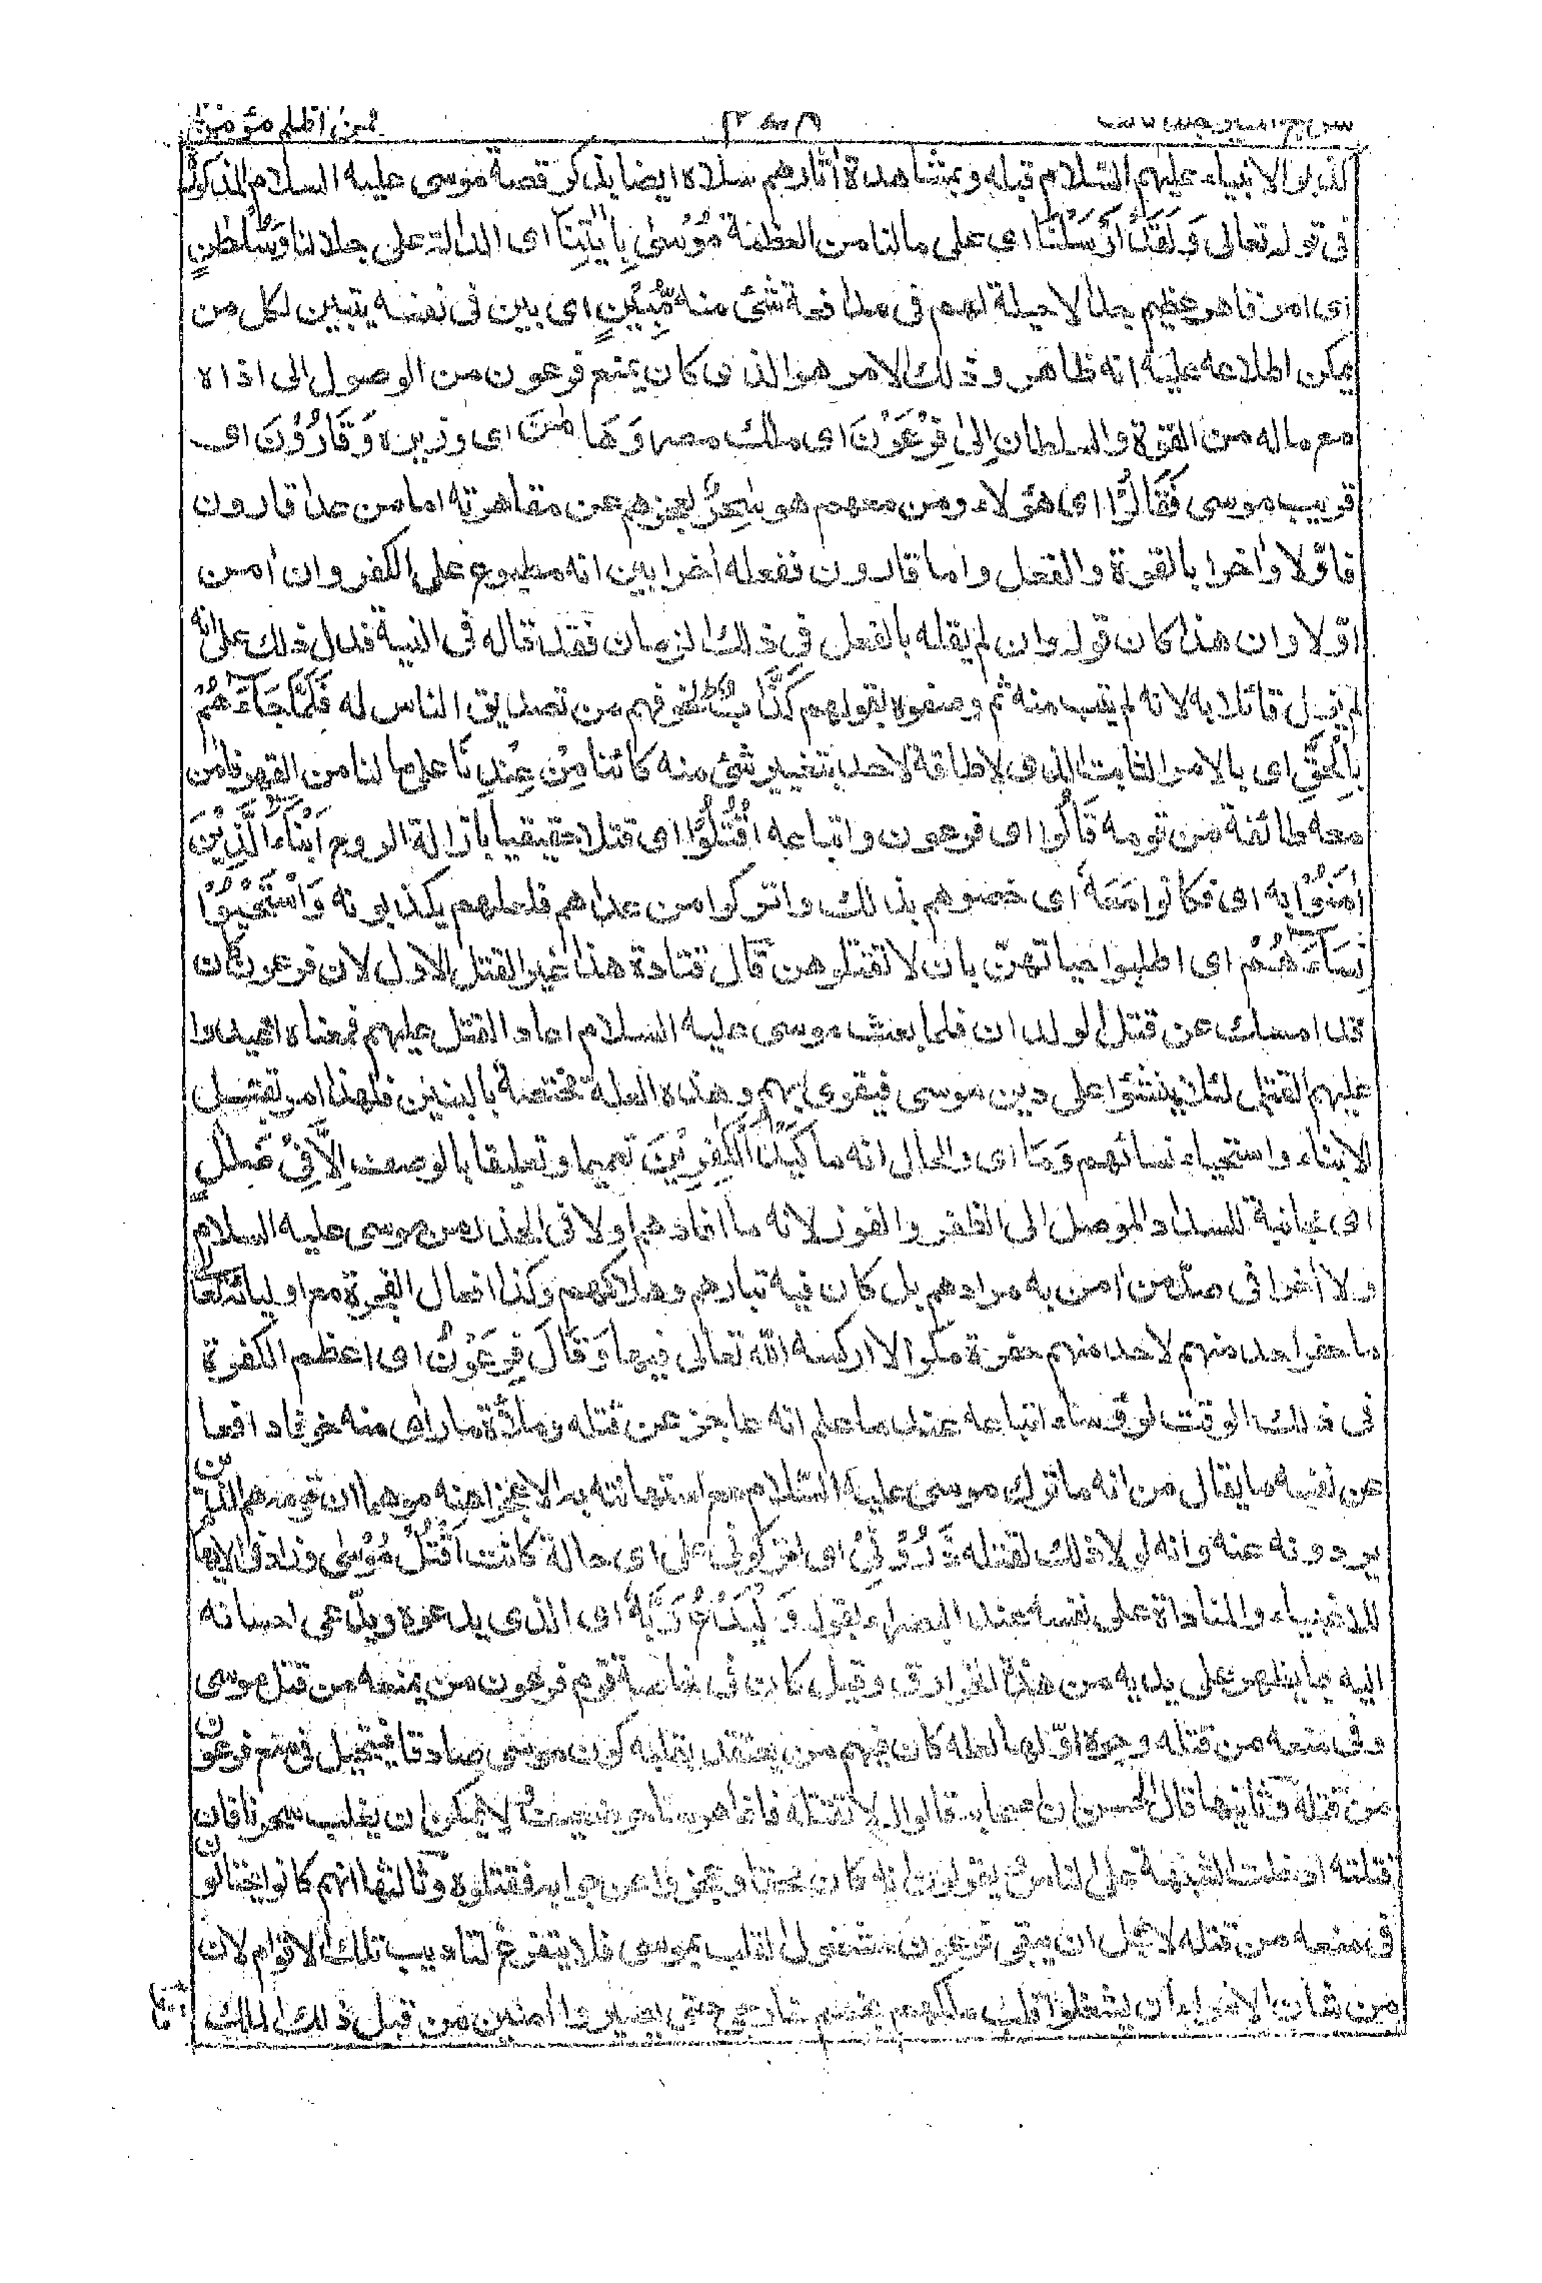 فمن اظلم مؤمن
كذبوا الانبياء عليهم السلام قبله وبمشاهدة آثارهم سلاه ايضا بذكر قصة موسى عليه السلام المذكورة
فى قوله تعالى وَلَقَدْ أَرْسَلْنَا اى على مالنا من العظمة مُوْسٰى بِاٰيٰتِنَا اى الدالة على جلالنا وَسُلْطٰنٍ
اى امر قاهر عظيم جدا لا حيلة لهم فى مدافعة شئ منه مُّبِيْنٍ اى بين فى نفسه يتبين لكل من
يمكن اطلاعه عليه انه ظاهر وذلك الامر هو الذى كان يمنع فرعون من الوصول الى اذاه
مع ماله من القوة والسلطان اِلٰى فِرْعَوْنَ اى ملك مصر وَهَامٰنَ اى وزيره وَقَارُوْنَ اى
قريب موسى فَقَالُوْا اى هؤلاء ومن معهم هو سٰحِرٌ لعجزهم عن مقاهرته اما من عدا قارون
فاولا واٰخرا بالقوة والفعل واما قارون ففعله اٰخرا بين انه مطبوع على الكفر وان اٰمن
اولا وان هذا كان قوله وان لم يقله بالفعل فى ذلك الزمان فقد قاله فى التيه فدل ذلك على انه
لم يزل قائلا به لانه لم يتب منه ثم وصفوه بقولهم كَذَّابٌ لخوفهم من تصديق الناس له فَلَمَّا جَآءَهُمْ
بِالْحَقِّ اى بالامر الثابت الذى لا طاقة لاحد بتغيير شئ منه كائنا مِنْ عِنْدِنَا على مالنا من القهر فاٰمن
معه طائفة من قومه قَالُوا اى فرعون واتباعه اقْتُلُوْا اى قتلا حقيقيا بازالة الروح اَبْنَآءَ الَّذِيْنَ
اٰمَنُوْا به اى فكانوا مَعَهٗ اى خصوهم بذلك واتركوا من عداهم فلعلهم يكذبونه وَاسْتَحْيُوْا
نِسَآءَهُمْ اى اطلبوا حياتهن بان لا تقتلوهن قال قتادة هذا غير القتل الاول لان فرعون كان
قد امسك عن قتل الولدان فلما بعث موسى عليه السلام اعاد القتل عليهم فمعناه اعيدوا
عليهم القتل لئلا ينشئوا على دين موسى فيقوى بهم وهذه العلة مختصة بالبنين فلهذا امر بقتل
الابناء واستحياء نسائهم وَمَا اى والحال انه ما كَيْدُ الْكٰفِرِيْنَ تعميما وتعليقا بالوصف اِلَّا فِىْ ضَلٰلٍ
اى مجانبة للسداد الموصل الى الظفر والفوز لانه ما افادهم اولا فى الحذر من موسى عليه السلام
ولا اٰخرا فى صد من اٰمن به مرادهم بل كان فيه تبارهم وهلاكهم وكذا افعال الفجرة مع اولياء الله
ما حفر احد منهم لاحد منهم حفرة مكر الا اركسه الله تعالى فيها وَقَالَ فِرْعَوْنُ اى اعظم الكفرة
فى ذلك الوقت لرؤساء اتباعه عند ما علم انه عاجز عن قتله وملأه ما راٰى منه خوفا دافعا
عن نفسه ما يقال من انه ما ترك موسى عليه السلام مع استهانته به الا عجزا منه موهما ان قومه هم الذين
يردونه عنه وانه لو لا ذلك لقتله ذَرُوْنِىْ اى اتركونى على اى حالة كانت اَقْتُلْ مُوْسٰى وزاد فى الايهام
للاغبياء والمناداة على نفسه عند البصراء بقوله وَلْيَدْعُ رَبَّهٗ اى الذى يدعوه ويدعى احسانه
اليه بما يظهر على يديه من هذه الخوارق وقيل كان فى خاصة قوم فرعون من يمنعه من قتل موسى
وفى منعه من قتله وجوه اولها لعله كان فيهم من يعتقد بقلبه كون موسى صادقا فيتحيل فى منع فرعون
من قتله وثانيها قال الحسن ان اصحابه قالوا له لا تقتله فانما هو ساحر ضعيف لا يمكن ان يغلب سحرنا فان
قتلته ادخلت الشبهة على الناس يقولون انه كان محقا وعجزوا عن جوابه فقتلوه وثالثها انهم كانوا يحتالون
فى منعه من قتله لاجل ان يبقى فرعون مشغول القلب بموسى فلا يتفرغ لتاديب تلك الاقوام لان
من شان الامراء ان يشغلوا قلب ملكهم بخصم خارجى حتى يصيروا اٰمنين من قبل ذلك الملك